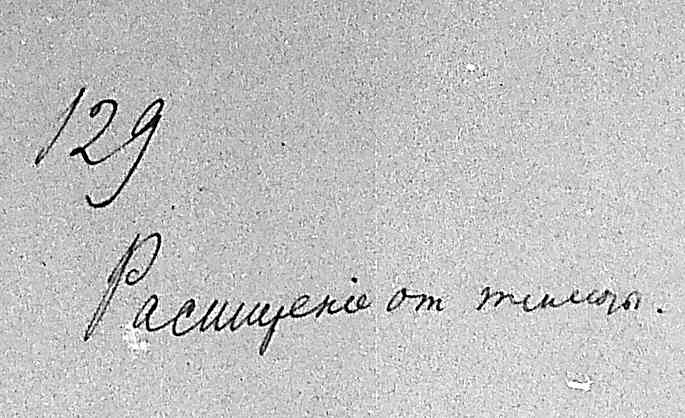 129
Расширеніе от теплоты.